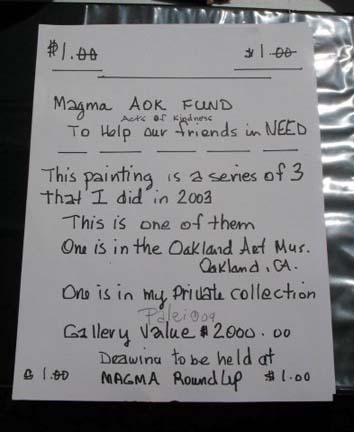 $1.00 $1.00
Magma AOK FUND
Acts Of Kindness
To Help our friends in NEED
This painting is a series of 3
that I did in 2003
This is one of them
One is in the Oakland Art Mus.
Oakland, CA.
One is in my Private collection
Gallery Value $2000.00
Drawing to be held at
$1.00 MAGMA RoundUp $1.00